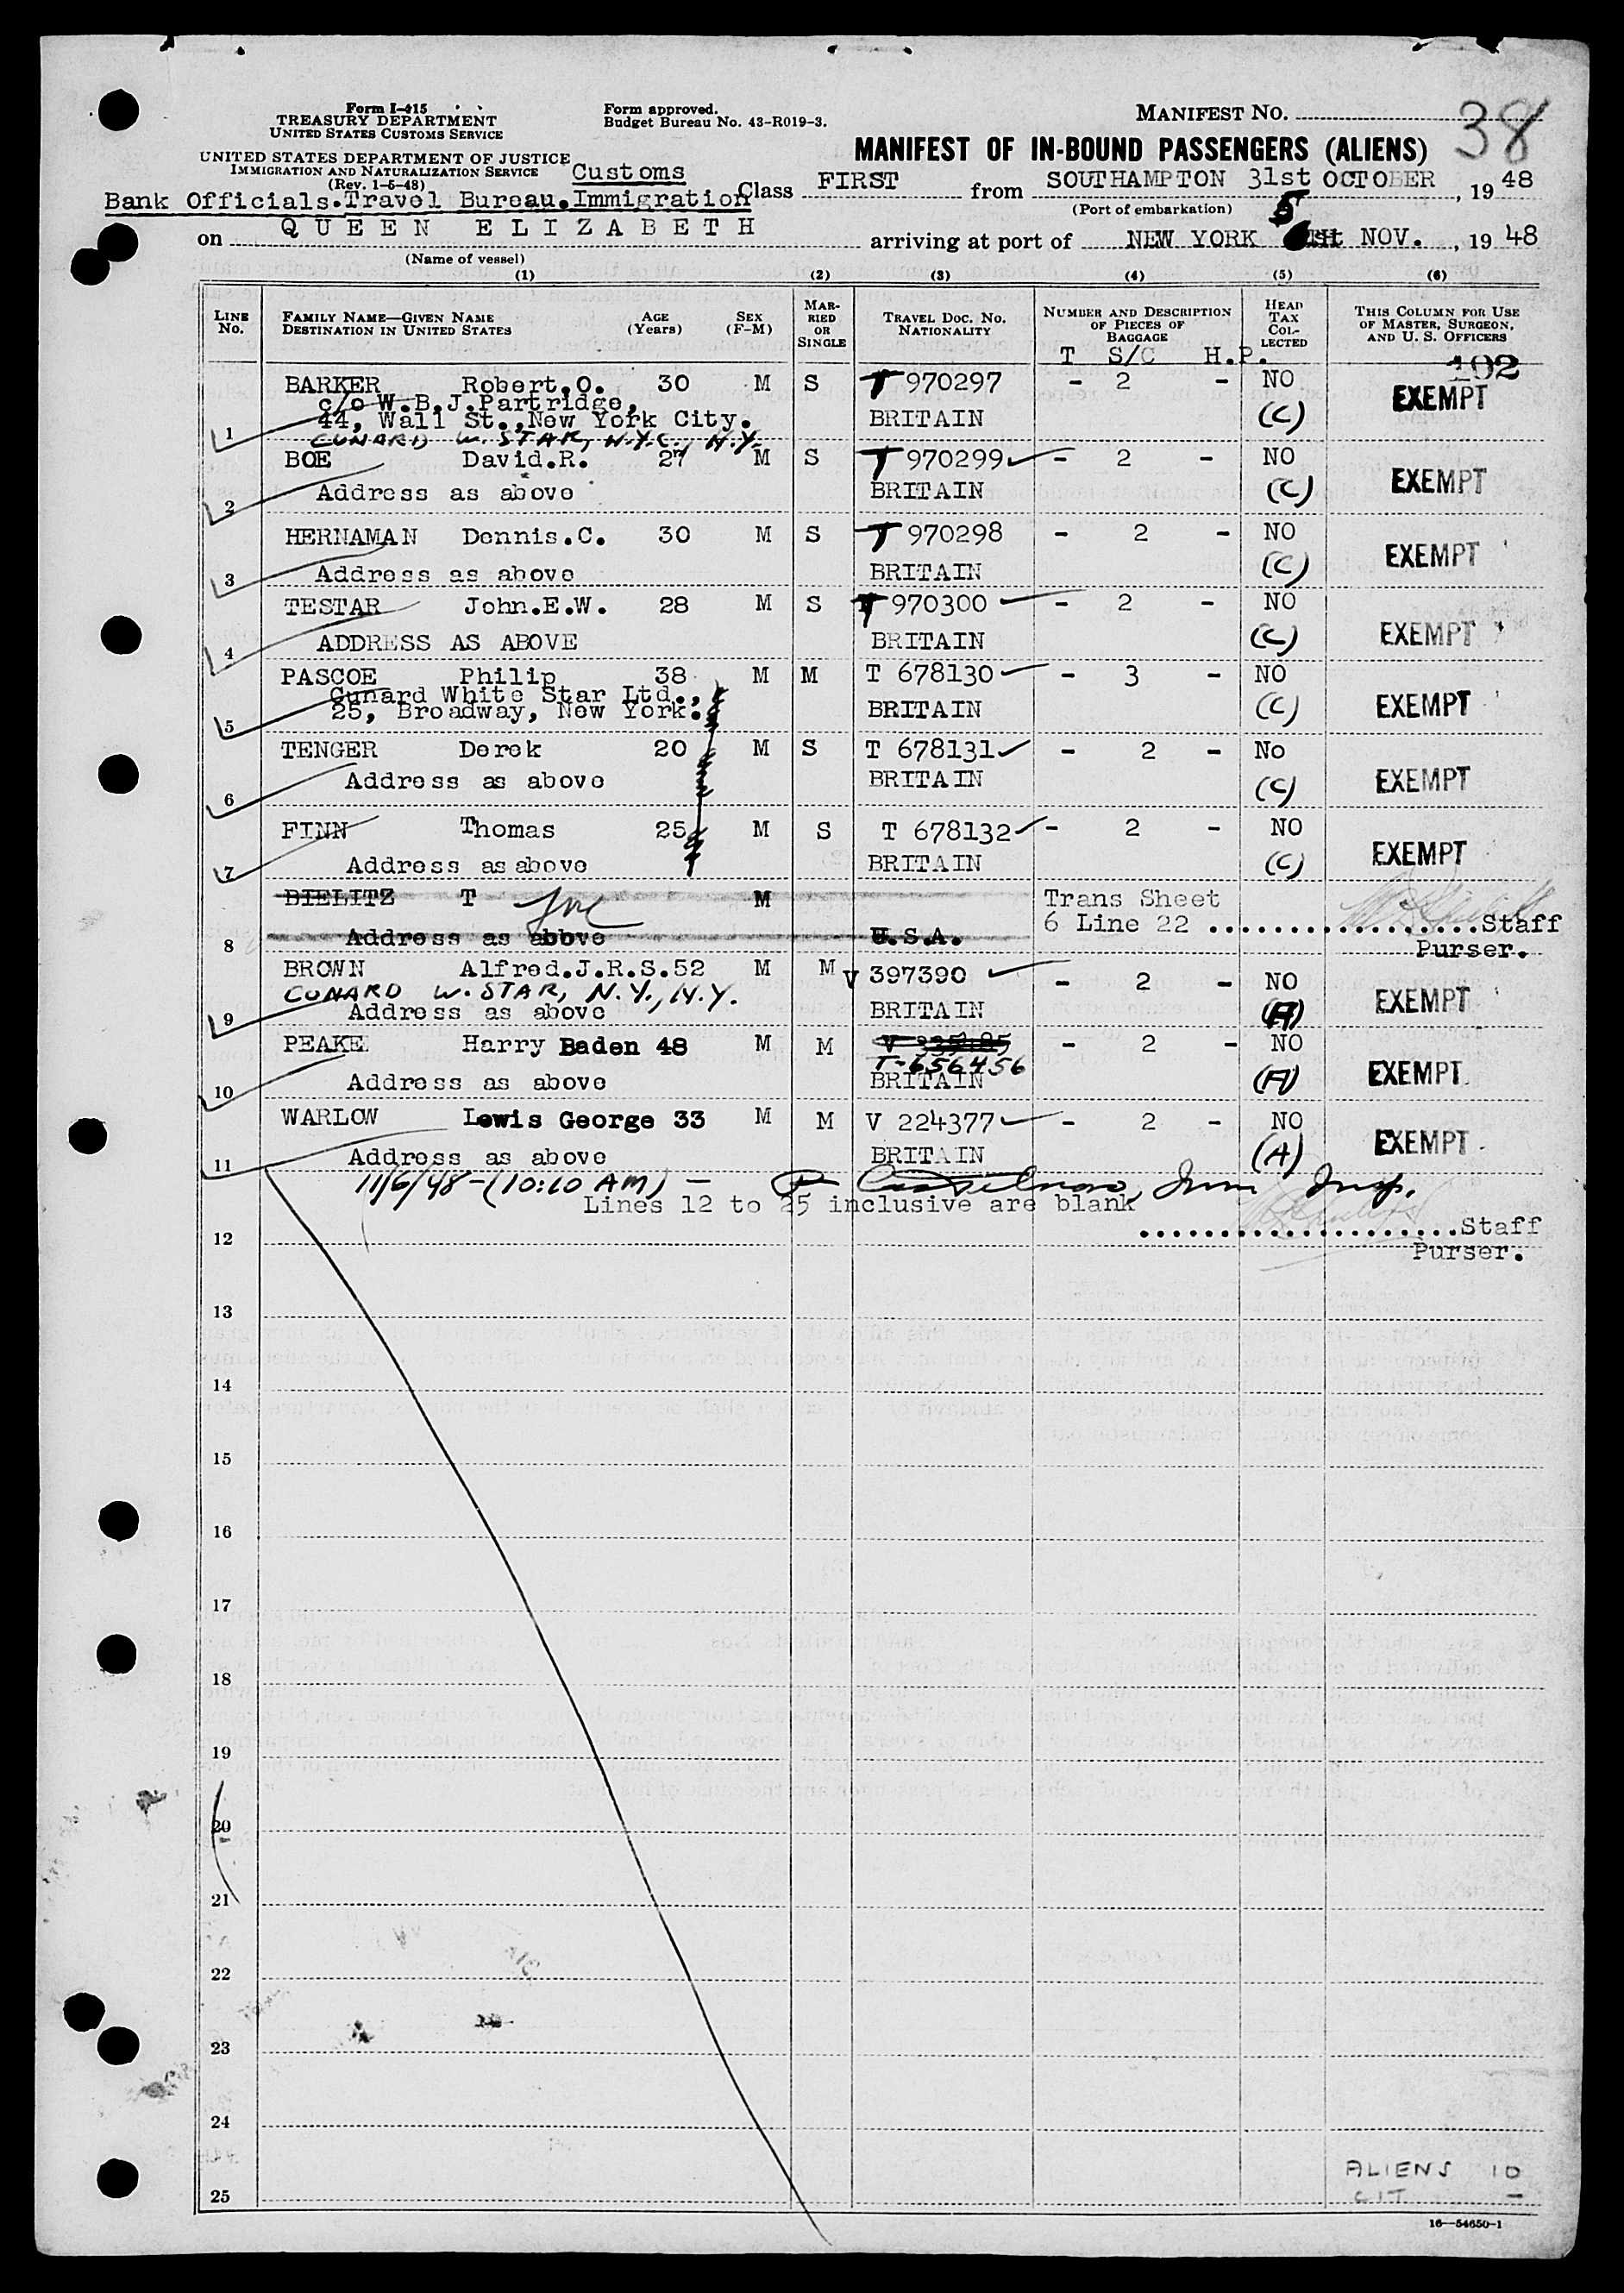 Form I-415
TREASURY DEPARTMENT
UNITED STATES CUSTOMS SERVICE
Form approved.
Budget Bureau No. 43-R019-3.
MANIFEST NO. 38
UNITED STATES DEPARTMENT OF JUSTICE
IMMIGRATION AND NATURALIZATION SERVICE
(Rev. 1-5-48)
MANIFEST OF IN-BOUND PASSENGERS (ALIENS)
Customs
Bank Officials.Travel Bureau.Immigration
Class FIRST from SOUTHAMPTON 31st OCTOBER, 19 48
(Port of embarkation)
on QUEEN ELIZABETH arriving at port of NEW YORK 5 TH NOV., 19 48
(Name of vessel)
(1) (2) (3) (4) (5) (6)
LINE NO. FAMILY NAME—GIVEN NAME DESTINATION IN UNITED STATES AGE (Years) SEX (F-M) MARRIED OR SINGLE TRAVEL DOC. NO. NATIONALITY NUMBER AND DESCRIPTION OF PIECES OF BAGGAGE HEAD TAX COLLECTED THIS COLUMN FOR USE OF MASTER, SURGEON, AND U. S. OFFICERS
T S/C H.P.
102
BARKER Robert.O. 30 M S T 970297 - 2 - NO EXEMPT
c/o W.B.J.Partridge,
1 44, Wall St.,New York City. BRITAIN (C)
CUNARD W. STAR, N.Y.C., N.Y.
BOE David.R. 27 M S T 970299 - 2 - NO
2 Address as above BRITAIN (C) EXEMPT
HERNAMAN Dennis.C. 30 M S T 970298 - 2 - NO
3 Address as above BRITAIN (C) EXEMPT
TESTAR John.E.W. 28 M S T 970300 - 2 - NO
4 ADDRESS AS ABOVE BRITAIN (C) EXEMPT
PASCOE Philip 38 M M T 678130 - 3 - NO
Cunard White Star Ltd.,
5 25, Broadway, New York. BRITAIN (C) EXEMPT
TENGER Derek 20 M S T 678131 - 2 - No
6 Address as above BRITAIN (C) EXEMPT
FINN Thomas 25 M S T 678132 - 2 - NO
7 Address as above BRITAIN (C) EXEMPT
BIELITZ T M Trans Sheet
8 Address as above U.S.A. 6 Line 22 .................Staff
Purser.
BROWN Alfred.J.R.S.52 M M V 397390 - 2 - NO
CUNARD W. STAR, N.Y., N.Y.
9 Address as above BRITAIN (A) EXEMPT
PEAKE Harry Baden 48 M M V 335185 - 2 - NO
T-656456
10 Address as above BRITAIN (A) EXEMPT
WARLOW Lewis George 33 M M V 224377 - 2 - NO
11 Address as above BRITAIN (A) EXEMPT
11/6/48 - (10:10 AM) - Imm Insp.
Lines 12 to 25 inclusive are blank
....................Staff
Purser.
12
13
14
15
16
17
18
19
20
21
22
23
24
25
ALIENS 10
CIT -
16—54650-1